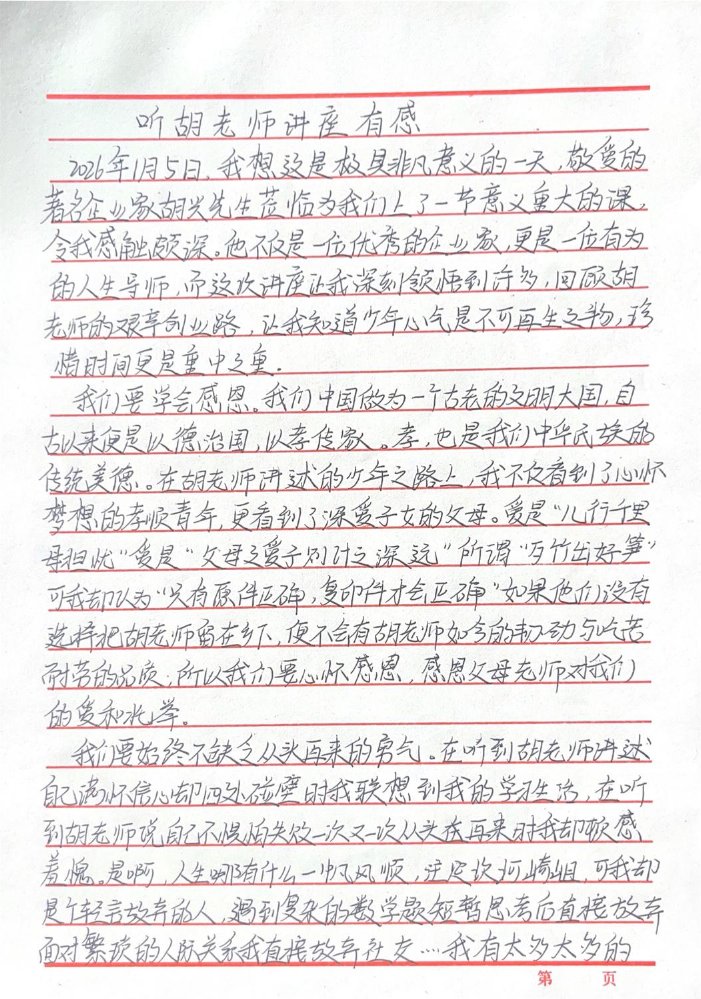 听胡老师讲座有感
2026年1月5日,我想这是极具非凡意义的一天,敬爱的
著名企业家胡兴先生莅临为我们上了一节意义重大的课,
令我感触颇深。他不仅是一位优秀的企业家,更是一位有为
的人生导师,而这次讲座让我深刻领悟到许多,回顾胡
老师的艰辛创业路,让我知道少年心气是不可再生之物,珍
惜时间更是重中之重.
我们要学会感恩。我们中国做为一个古老的文明大国,自
古以来便是以德治国,以孝传家。孝,也是我们中华民族的
传统美德。在胡老师讲述的少年之路上,我不仅看到了心怀
梦想的孝顺青年,更看到了深爱子女的父母。爱是“儿行千里
母担忧”爱是“父母之爱子则计之深远”所谓“歹竹出好笋”
可我却认为“只有原件正确,复印件才会正确”如果他们没有
选择把胡老师留在乡下,便不会有胡老师如今的韧劲与吃苦
耐劳的品质,所以我们要心怀感恩,感恩父母老师对我们
的爱和光荣。
我们要始终不缺乏从头再来的勇气。在听到胡老师讲述
自己满怀信心却四处碰壁时我联想到我的学习生活,在听
到胡老师说自己不惧怕失败一次又一次从头再来时我却颇感
羞愧。是啊,人生哪有什么一帆风顺,注定坎坷崎岖,可我却
是个轻言放弃的人,遇到复杂的数学题短暂思考后直接放弃
面对繁琐的人际关系我直接放弃社交……我有太多太多的
第 页